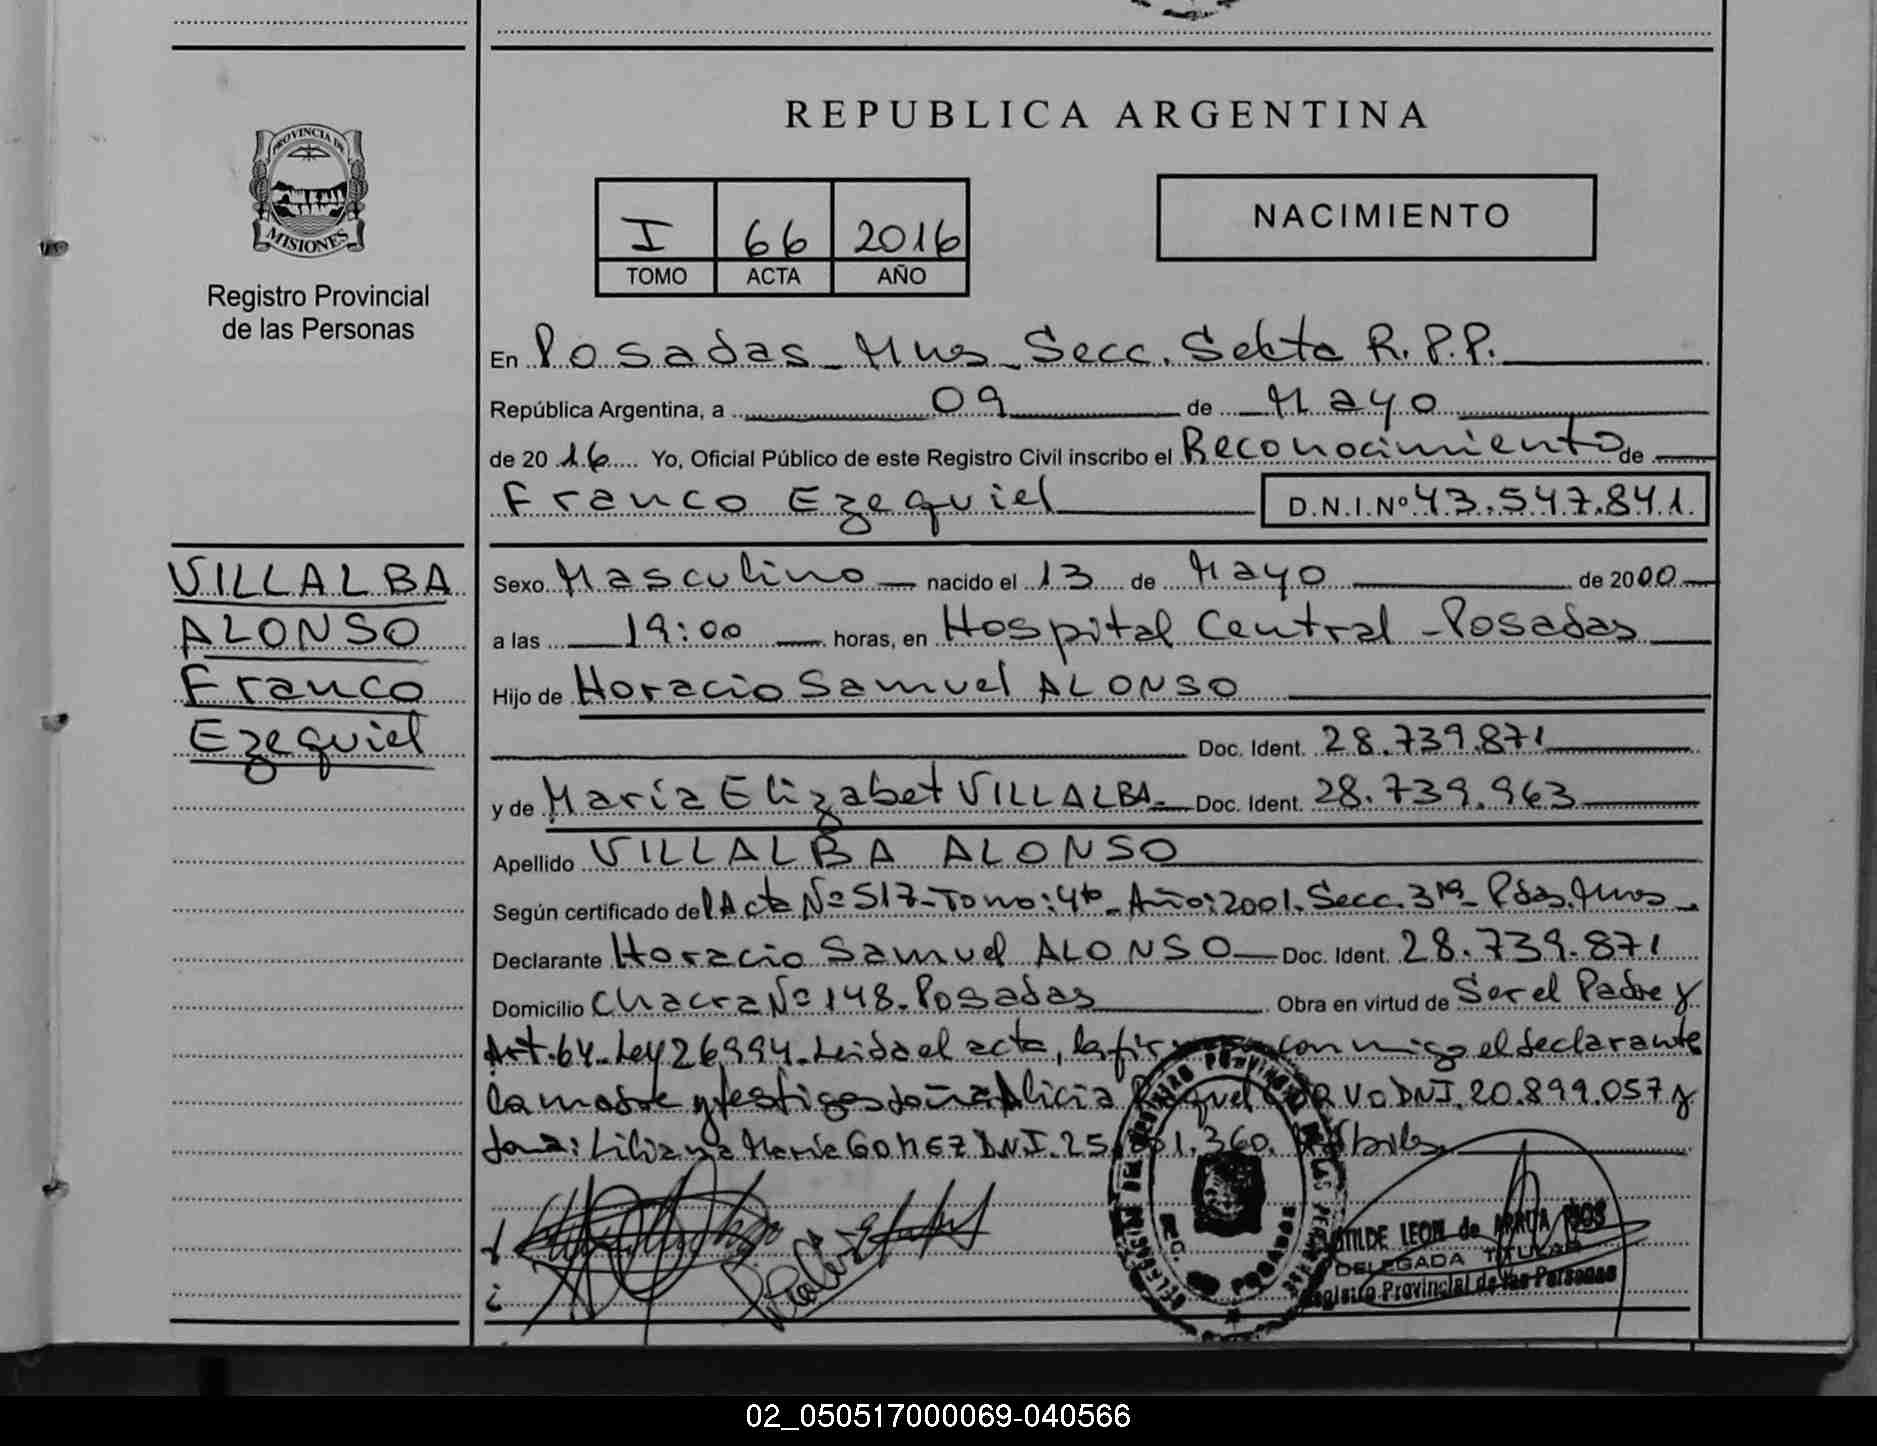 REPUBLICA ARGENTINA
PROVINCIA DE
MISIONES
Registro Provincial
de las Personas
I 66 2016
TOMO ACTA AÑO
NACIMIENTO
En Posadas - Mnes - Secc. Sekta R.P.P.
República Argentina, a 09 de Mayo
de 2016 Yo, Oficial Público de este Registro Civil inscribo el Reconocimiento de
Franco Ezequiel D.N.I.Nº 43.547.841.
VILLALBA
ALONSO
Franco
Ezequiel
Sexo Masculino nacido el 13 de Mayo de 2000
a las 19:00 horas, en Hospital Central - Posadas
Hijo de Horacio Samuel ALONSO
Doc. Ident. 28.739.871
y de María Elizabet VILLALBA Doc. Ident. 28.739.963
Apellido VILLALBA ALONSO
Según certificado del Acta Nº 517 - Tomo: 4to - Año: 2001. Secc. 3ra - Pdas. Mnes -
Declarante Horacio Samuel ALONSO Doc. Ident. 28.739.871
Domicilio Chacra Nº 148 - Posadas Obra en virtud de Ser el Padre y
Art. 64 - Ley 26994 - Leida el acta, la conmigo el declarante
la madre y testigos doña: Alicia DNI. 20.899.057 y
doña: Liliana María GOMEZ DNI. 25. 360.
LEON de
DELEGADA TITULAR
Registro Provincial de las Personas
02_050517000069-040566